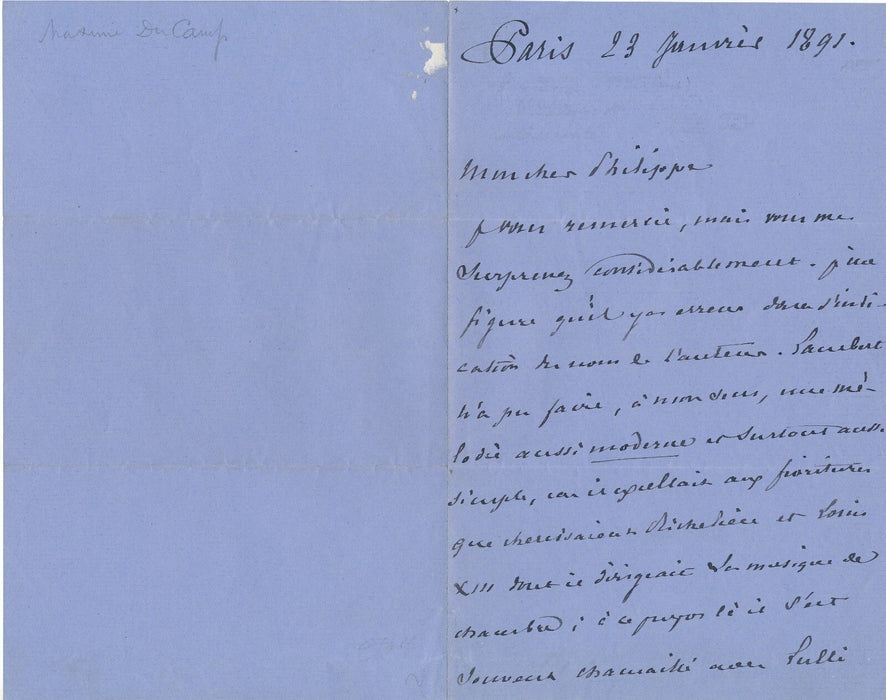 Maxime Du Camp
Paris 23 Janvier 1891.
Mon cher Philippe
je vous remercie, mais vous me
surprenez considérablement. je me
figure qu'il y a erreur dans l'indi-
cation du nom de l'auteur. Lambert
n'a pu faire, à mon sens, une mé-
lodie aussi moderne et surtout aussi
simple, car il excellait aux fioritures
que cherissaient Richelieu et Louis
XIII dont il dirigeait la musique de
chambre ; à ce propos là il s'est
souvent chamaillé avec Lulli